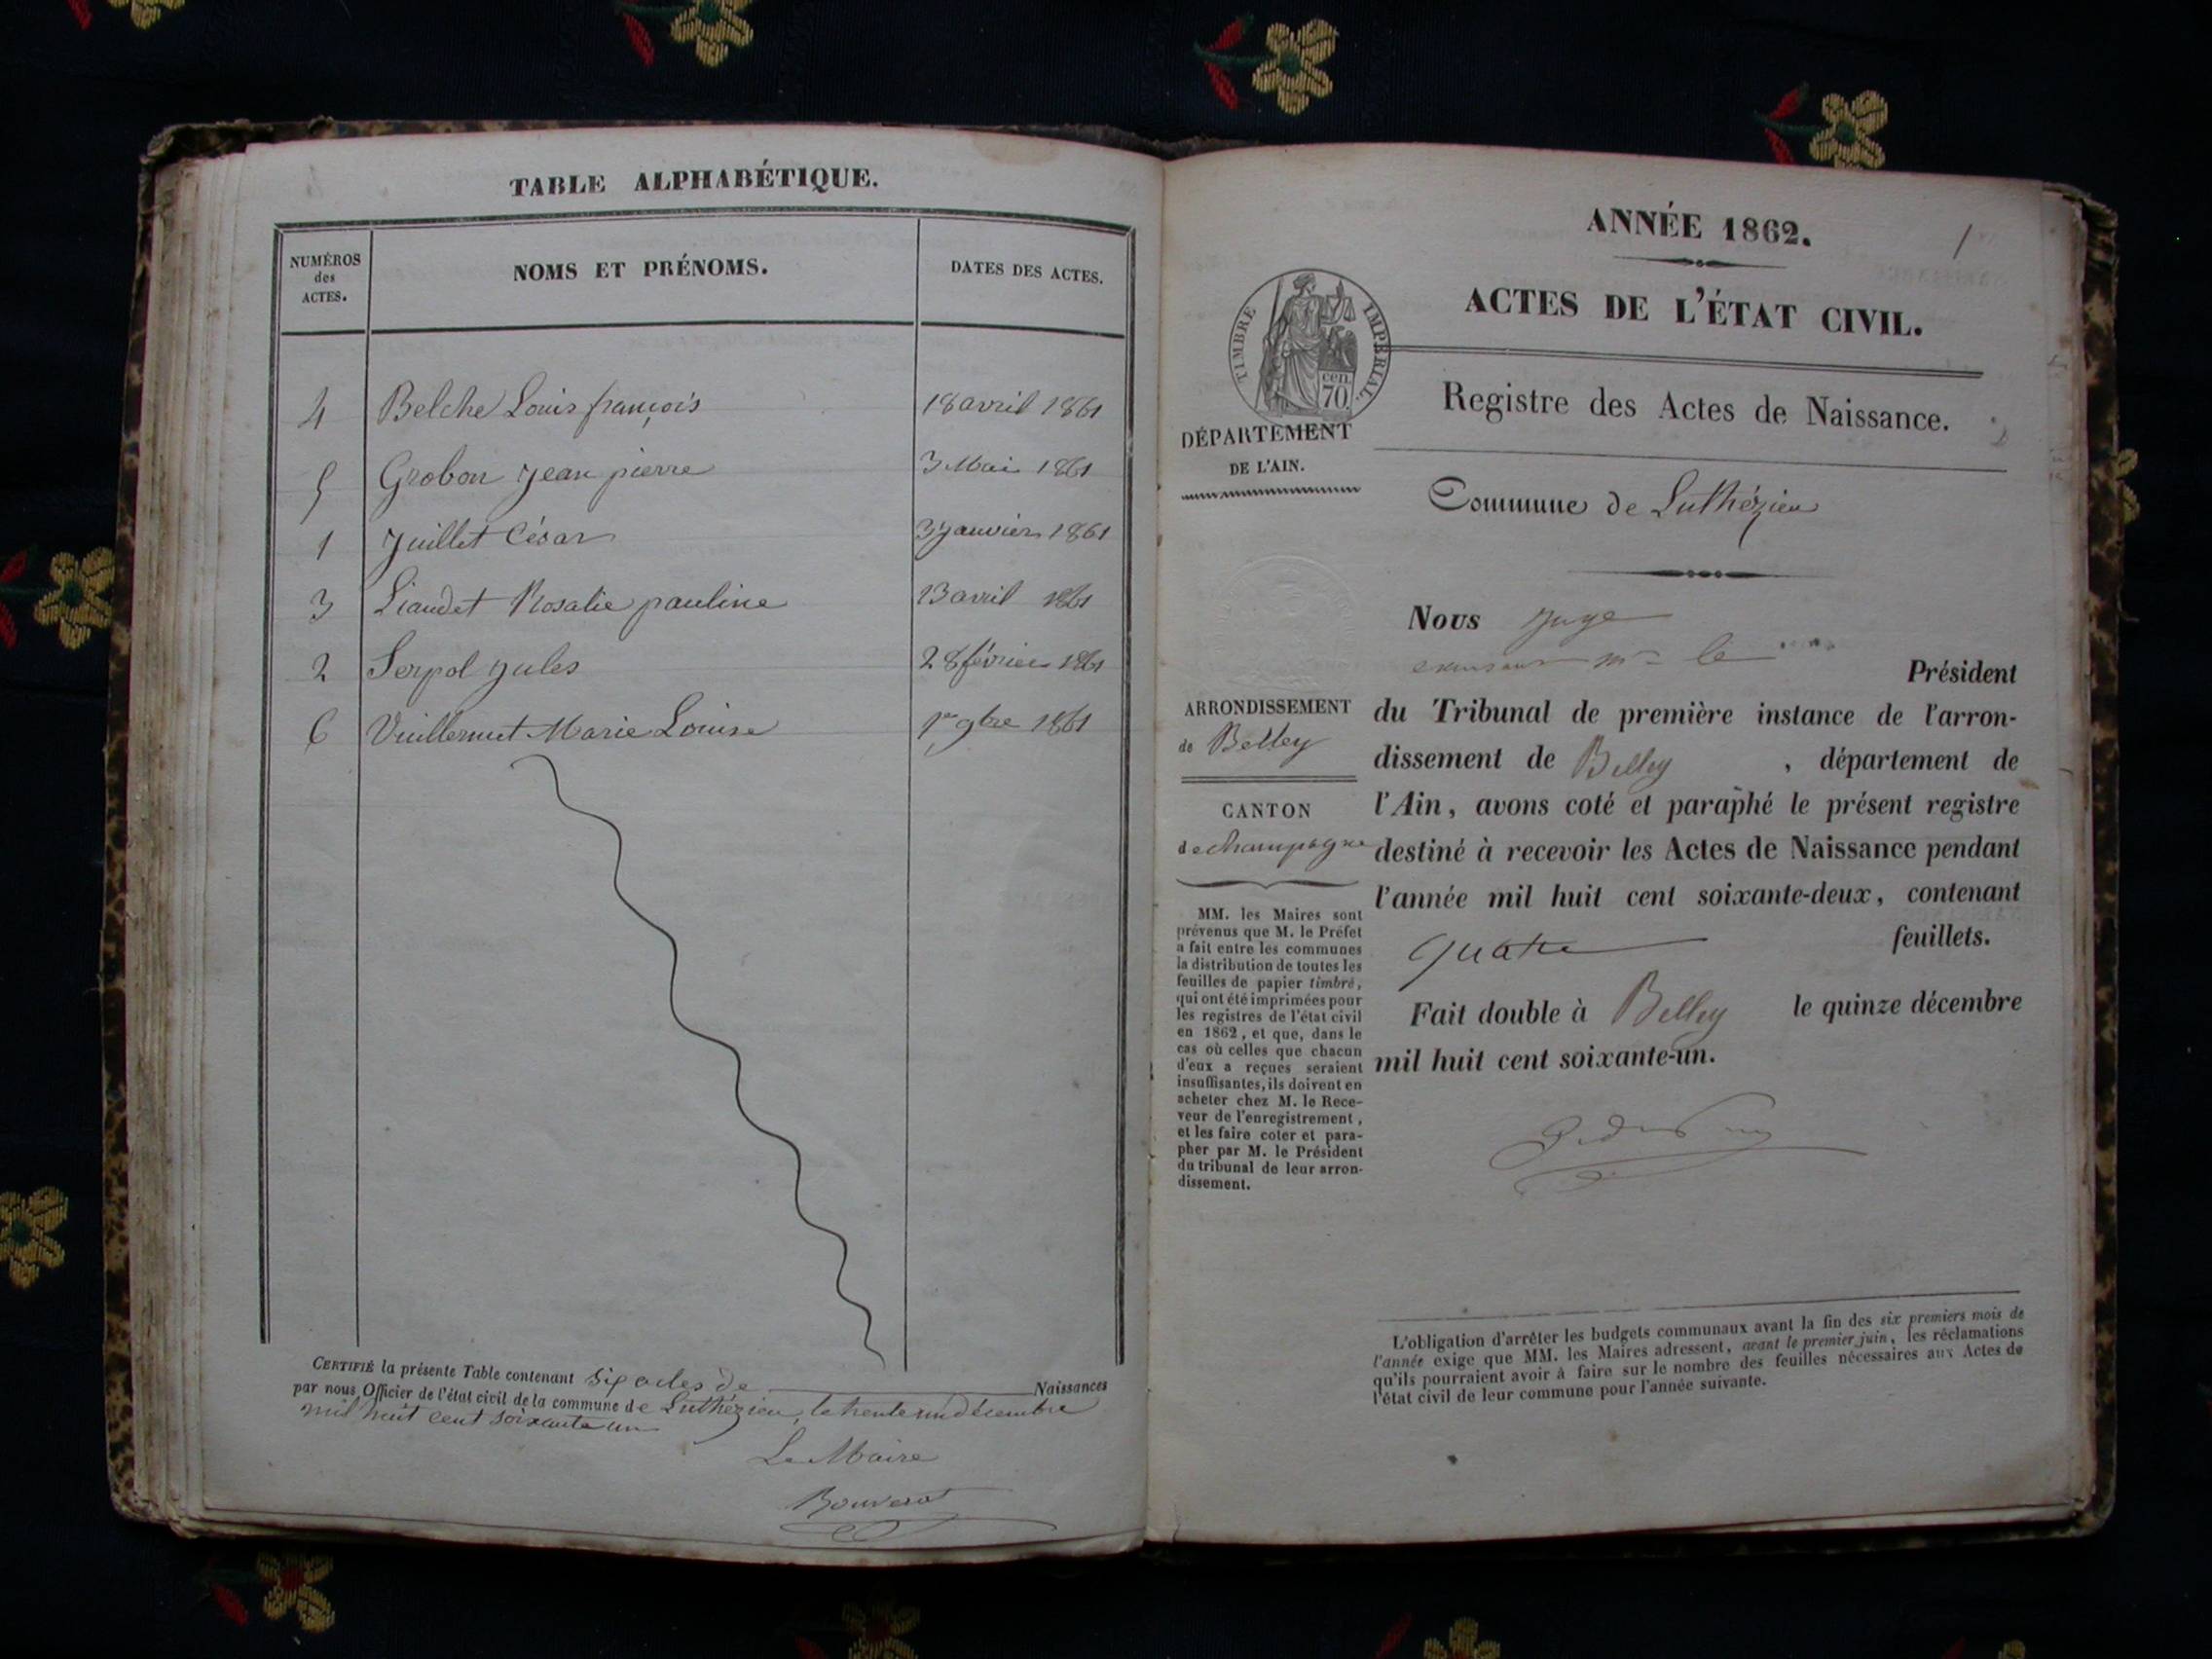 TABLE ALPHABÉTIQUE.
NUMÉROS
des
ACTES.
NOMS ET PRÉNOMS.
DATES DES ACTES.
4 Belche Louis françois 18 avril 1861
5 Grobon Jean pierre 3 Mai 1861
1 Juillet César 3 janvier 1861
3 Liaudet Rosalie pauline 13 avril 1861
2 Serpol Jules 28 février 1861
6 Vuillermet Marie Louise 1er 9bre 1861
CERTIFIÉ la présente Table contenant six actes de Naissances
par nous Officier de l'état civil de la commune de Luthézieu, le trente un décembre
mil huit cent soixante un
Le Maire
Bouverat
ANNÉE 1862.
1
ACTES DE L'ÉTAT CIVIL.
TIMBRE IMPÉRIAL.
cen.
70.
Registre des Actes de Naissance.
DÉPARTEMENT
DE L'AIN.
Commune de Luthézieu
Nous juge
le
Président
ARRONDISSEMENT
de Belley
CANTON
de Champagne
du Tribunal de première instance de l'arron-
dissement de Belley , département de
l'Ain, avons coté et paraphé le présent registre
destiné à recevoir les Actes de Naissance pendant
l'année mil huit cent soixante-deux, contenant
quatre feuillets.
Fait double à Belley le quinze décembre
mil huit cent soixante-un.
MM. les Maires sont
prévenus que M. le Préfet
a fait entre les communes
la distribution de toutes les
feuilles de papier timbré,
qui ont été imprimées pour
les registres de l'état civil
en 1862, et que, dans le
cas où celles que chacun
d'eux a reçues seraient
insuffisantes, ils doivent en
acheter chez M. le Rece-
veur de l'enregistrement,
et les faire coter et para-
pher par M. le Président
du tribunal de leur arron-
dissement.
L'obligation d'arrêter les budgets communaux avant la fin des six premiers mois de
l'année exige que MM. les Maires adressent, avant le premier juin, les réclamations
qu'ils pourraient avoir à faire sur le nombre des feuilles nécessaires aux Actes de
l'état civil de leur commune pour l'année suivante.